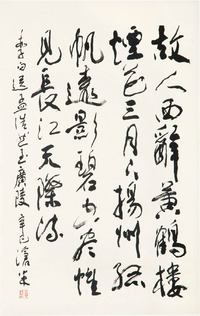 故人西辭黃鶴樓
煙花三月下揚州孤
帆遠影碧空盡惟
見長江天際流
李白送孟浩然至廣陵 辛巳滄